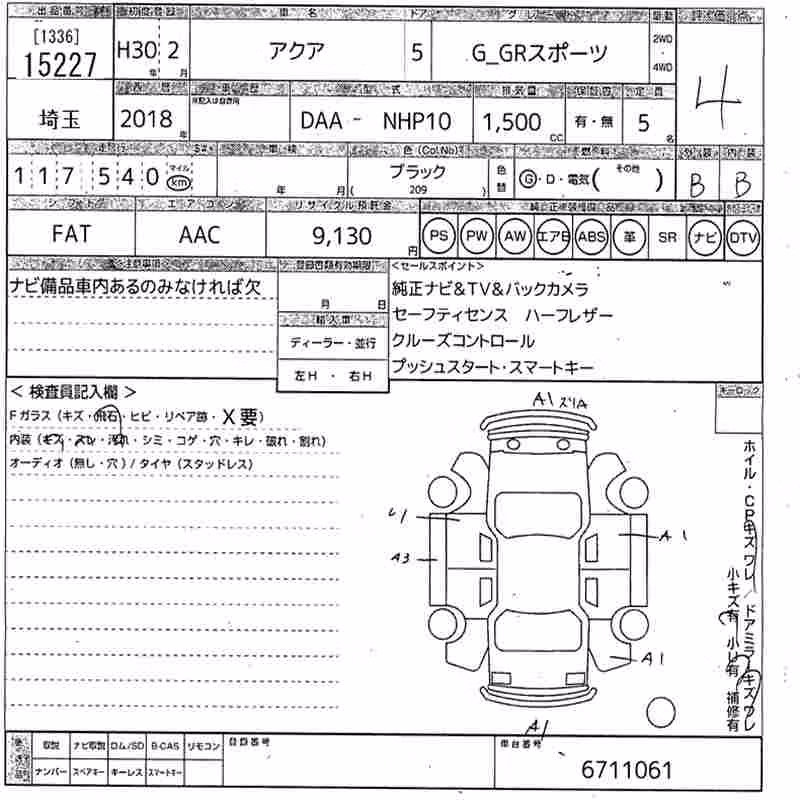 出品番号 初度登録 車名 ドア グレード 駆動 評価点
[1336]
15227 H30年 2月 アクア 5 G_GRスポーツ 2WD・4WD 4
西暦 車歴 型式 排気量 定員
埼玉 2018年 DAA - NHP10 1,500cc 有・無 5名
走行 車検 色(Col.No) 燃料 外装 内装
117540 マイル km 年 月 ブラック 209 色替 G・D・電気(その他) B B
シフト エアコン リサイクル預託金
FAT AAC 9,130円 PS PW AW エアB ABS 革 SR ナビ DTV
注意事項 登録書類有効期限 <セールスポイント>
ナビ備品車内あるのみなければ欠 月 日 純正ナビ&TV&バックカメラ
輸入車 セーフティセンス ハーフレザー
ディーラー・並行 クルーズコントロール
左H・右H プッシュスタート・スマートキー
< 検査員記入欄 >
Fガラス(キズ・飛石・ヒビ・リペア跡・X要)
内装(キズ・スレ・汚れ・シミ・コゲ・穴・キレ・破れ・割れ)
オーディオ(無し・穴)/タイヤ(スタッドレス)
キーロック
A1 スリA
U1
A1
A3
A1
A1
ホイル・CPキズワレ/ドアミラーキズワレ
小キズ有 小U有 補修有
取説 ナビ取説 ロム/SD B-CAS リモコン 登録番号 車台番号
ナンバー スペアキー キーレス スマートキー 6711061